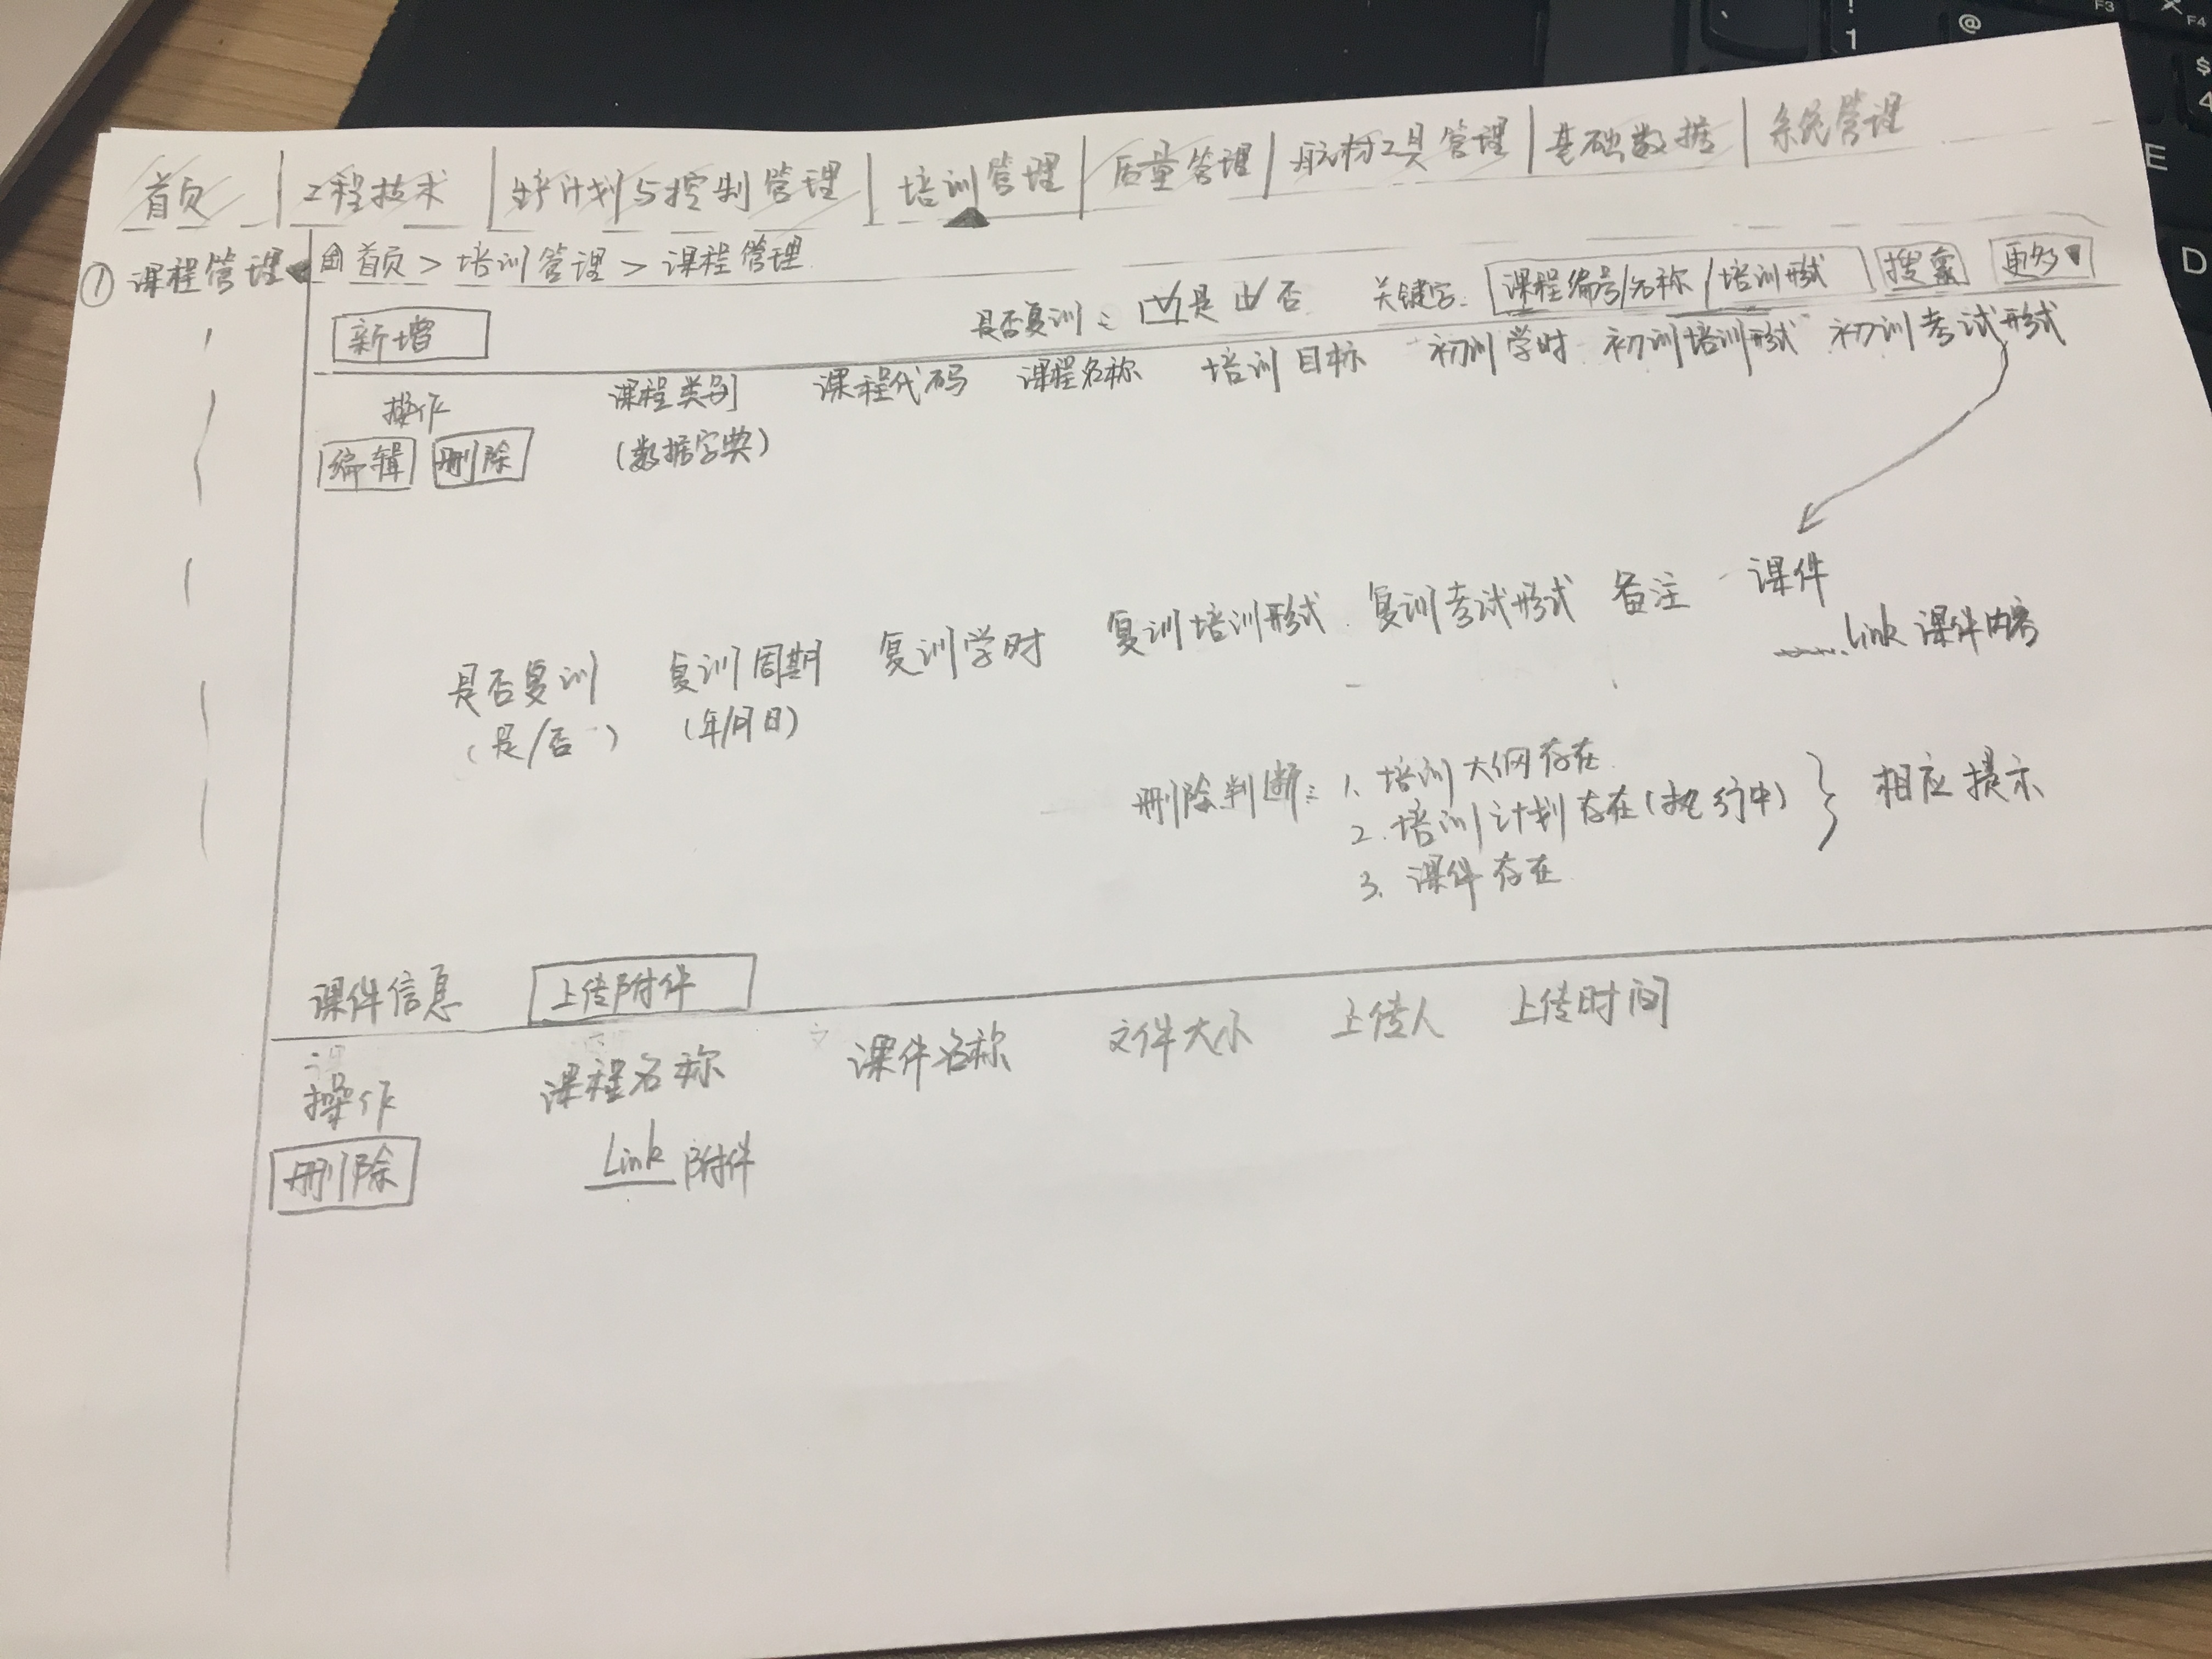 首页 | 工程技术 | 生产计划与控制管理 | 培训管理 | 质量管理 | 航材工具管理 | 基础数据 | 系统管理
① 课程管理
首页 > 培训管理 > 课程管理
新增 是否复训: 是 否 关键字: 课程编号/名称/培训形式 搜索 更多
操作 课程类别 课程代码 课程名称 培训目标 初训学时 初训培训形式 初训考试形式
编辑 删除 (数据字典)
是否复训 复训周期 复训学时 复训培训形式 复训考试形式 备注 课件
(是/否) (年/月日) Link 课件内容
删除判断: 1. 培训大纲存在
2. 培训计划存在(执行中) } 相应提示
3. 课件存在
课件信息 上传附件
操作 课程名称 课件名称 文件大小 上传人 上传时间
删除 Link 附件
@
! 1
F3
F4
$ 4
E
D